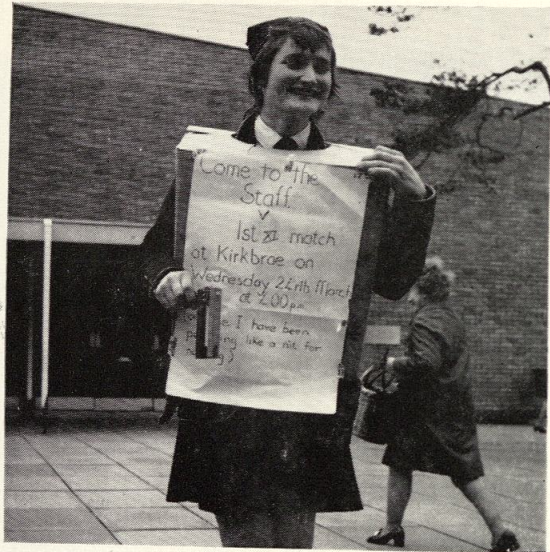 Come to the
Staff
v
1st XI match
at Kirkbrae on
Wednesday 24th March
at 2.00pm
I have been
like a nit for